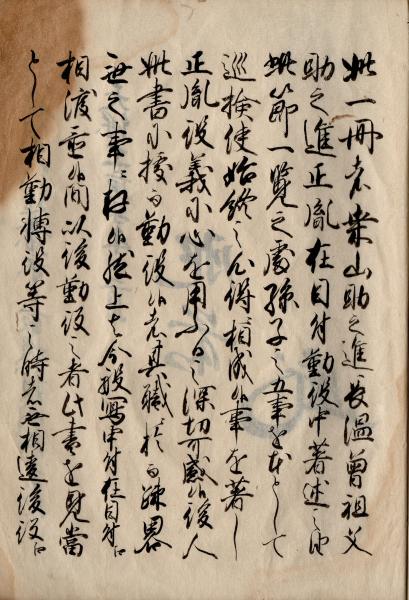 此一冊者栗山助之進長温曽祖父
助之進正胤在目付勤役中著述之由
此節一覧之處孫子之五事を本として
巡検使始終之心得相成候事を著し
正胤役義に心を用ふる之深切可感候後人
此書に據り勤役候者其職於る疎畧
無之事に存候然上者今般写申付在目付に
相渡置候間以後勤役之者此書を見當
として相勤轉役等之時者無相違後役に